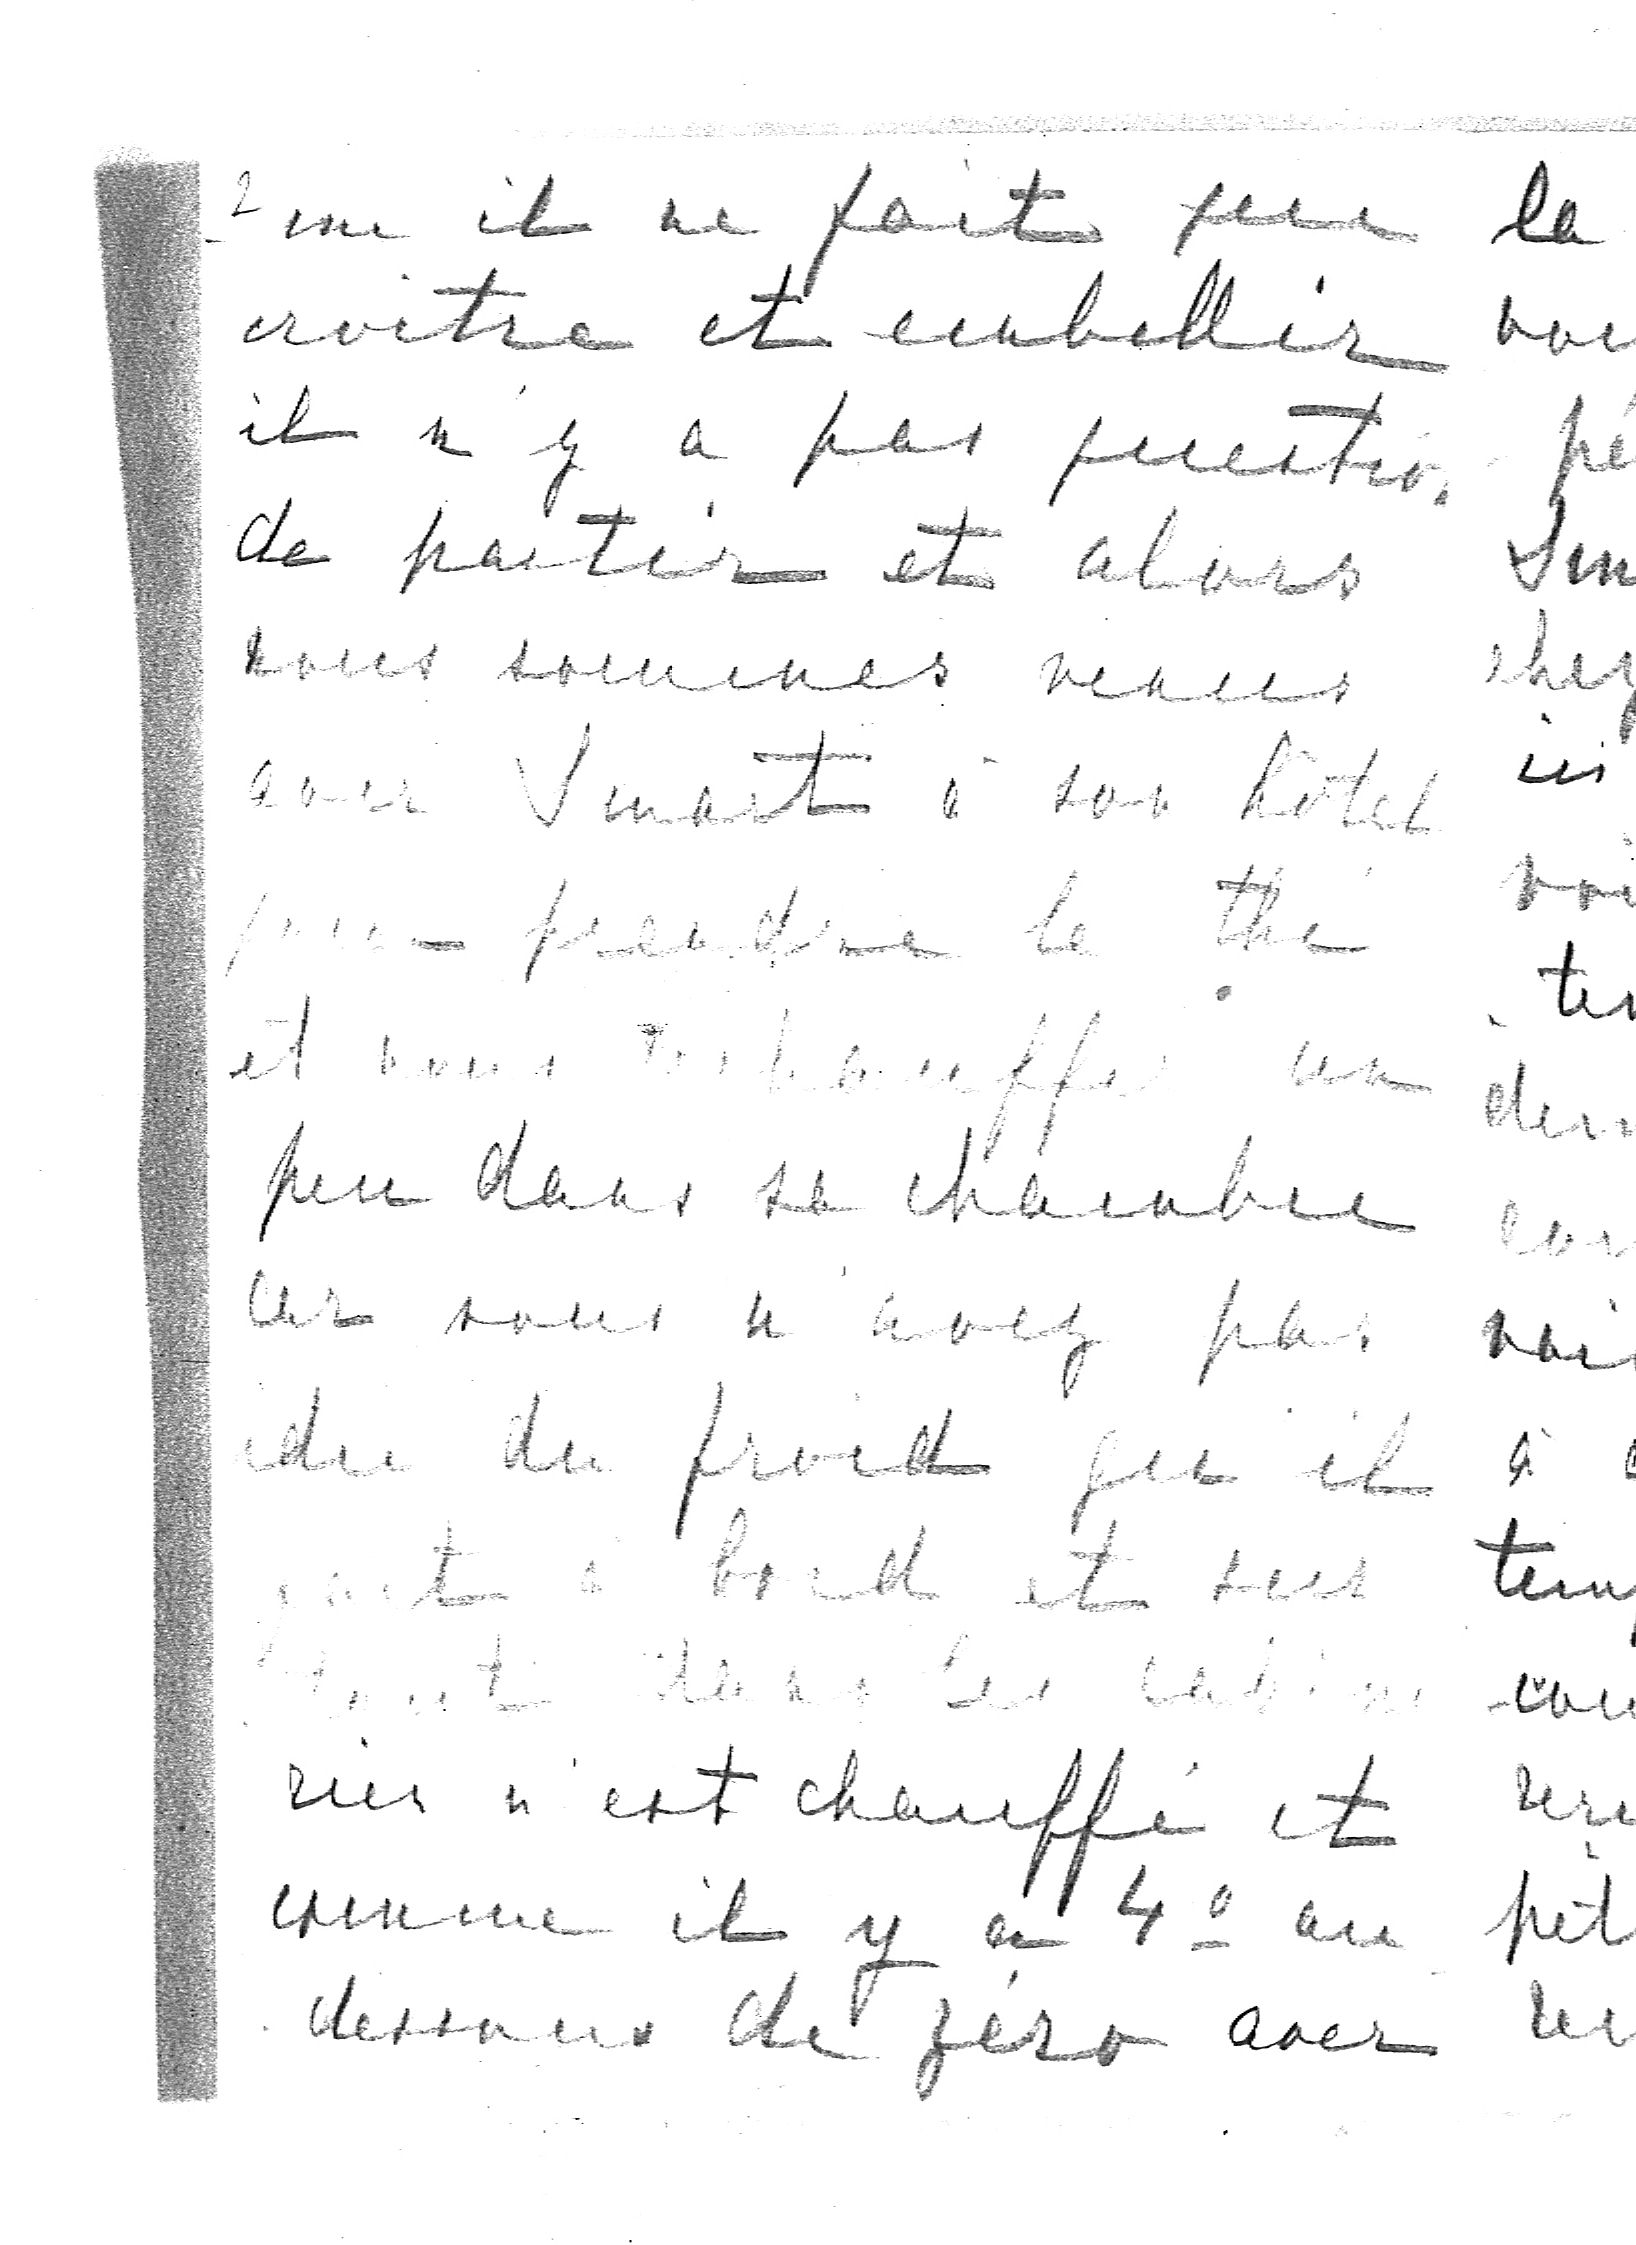 2 me il ne fait que
croitre et embellir
il n'y a pas question
de partir et alors
nous sommes venus
avec Smart à son hôtel
pour prendre le thé
et nous réchauffer un
peu dans sa chambre
car vous n'avez pas
idée du froid qu'il
fait à bord et sur
tout dans les cabines
rien n'est chauffé et
comme il y a 4° au
dessous de zéro avec
la